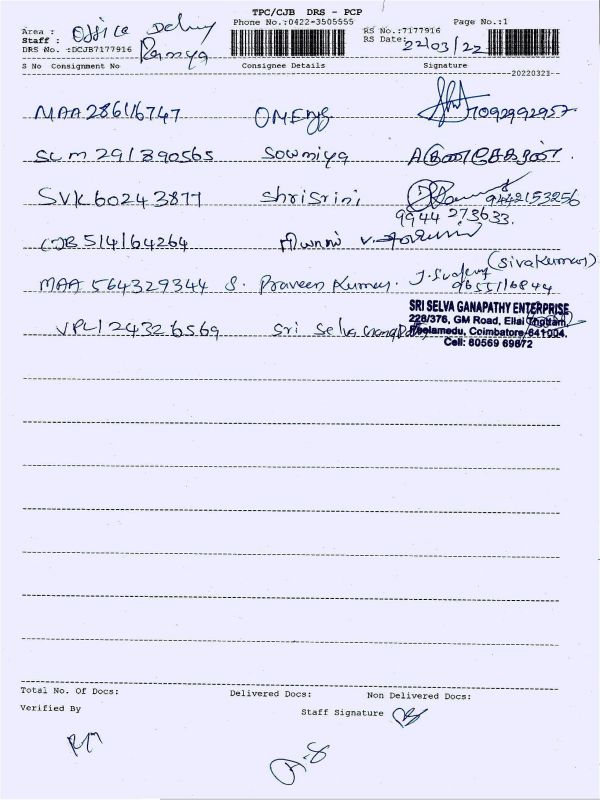 TPC/CJB DRS - PCP
Phone No.:0422-3505555 Page No.:1
Area : Office Delivy
Staff : Ramya
DRS No. :DCJB7177916
RS No.:7177916
RS Date: 22/03/22
S No Consignment No Consignee Details Signature
20220321
MAA286116747 OMEngg 7092992957
SLM 291890565 Sowmiya
SVK60243877 Shri Srini 9442153256
9944 273633
CJB514164264
MAA 564329344 S. Praveen Kumar. (Sivakumar)
9655116844
VPL124326569 Sri Selva Ganapathy
SRI SELVA GANAPATHY ENTERPRISE
228/376, GM Road, Ellai Thottam,
Peelamedu, Coimbatore-641004.
Cell: 80569 69872
Total No. Of Docs: Delivered Docs: Non Delivered Docs:
Verified By Staff Signature